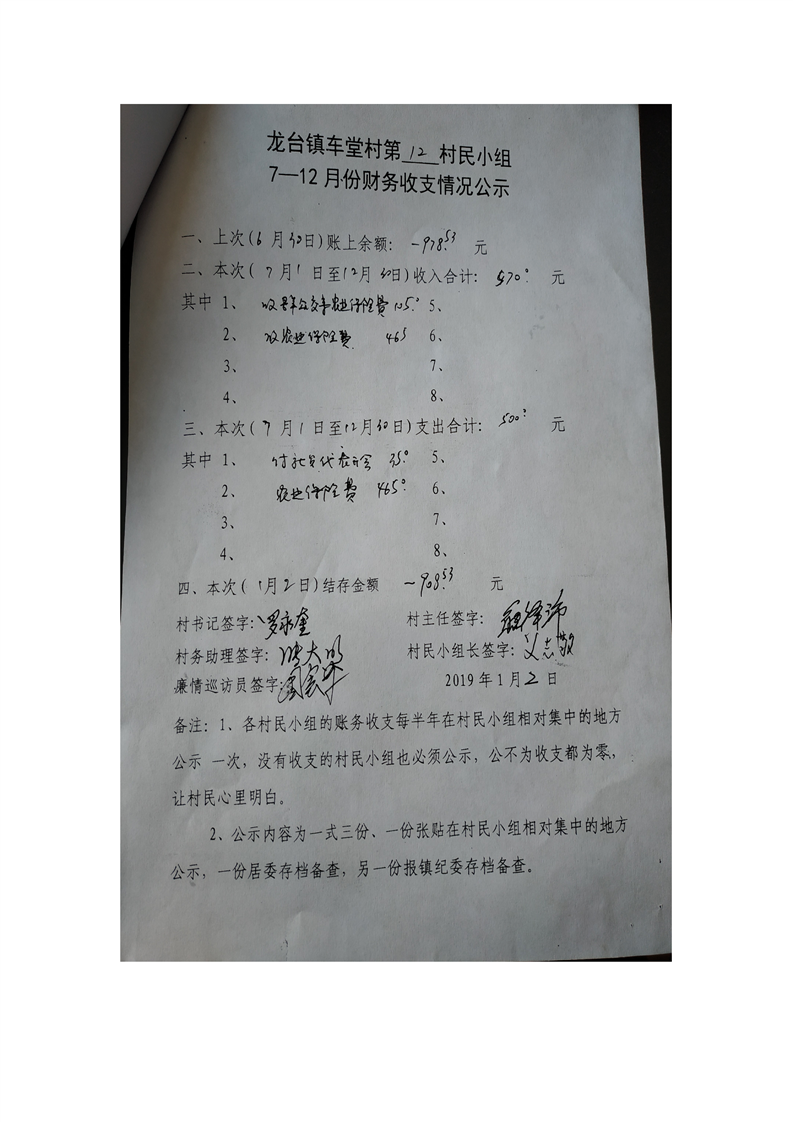 龙台镇车堂村第 12 村民小组
7—12月份财务收支情况公示
一、上次(6月30日)账上余额: -978.53 元
二、本次(7月1日至12月30日)收入合计: 570.0 元
其中 1、 收 农业保险费 105.0 5、
2、 收农业保险费 465 6、
3、 7、
4、 8、
三、本次(7月1日至12月30日)支出合计: 500.0 元
其中 1、 付社员代表会 35.0 5、
2、 农业保险费 465.0 6、
3、 7、
4、 8、
四、本次(1月2日)结存金额 -908.53 元
村书记签字: 罗永奎 村主任签字:
村务助理签字: 村民小组长签字:
廉情巡访员签字: 2019年1月2日
备注: 1、各村民小组的账务收支每半年在村民小组相对集中的地方
公示 一次,没有收支的村民小组也必须公示,公不为收支都为零,
让村民心里明白。
2、公示内容为一式三份、一份张贴在村民小组相对集中的地方
公示,一份居委存档备查,另一份报镇纪委存档备查。